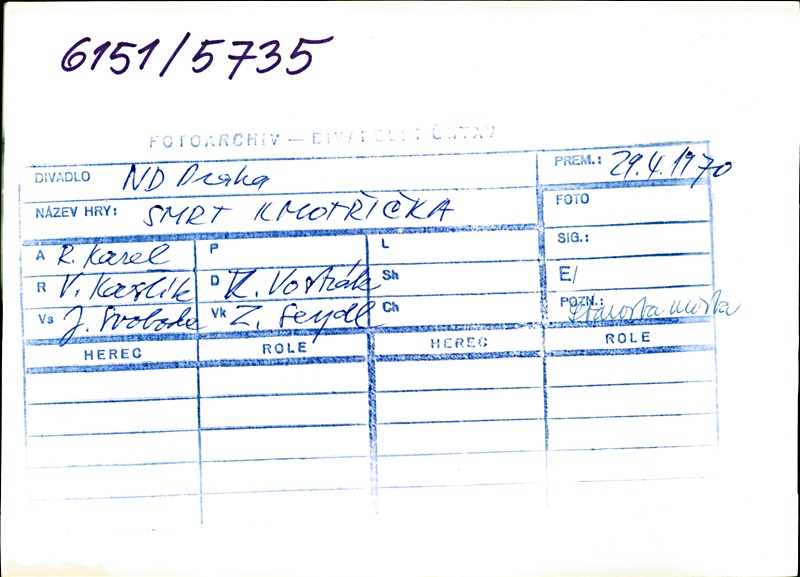 6151/5735
FOTOARCHIV — DIVADELNÍ ÚSTAV
DIVADLO ND Praha PREM.: 29.4.1970
NÁZEV HRY: SMRT KMOTŘIČKA FOTO
A R. Karel P L SIG.:
R V. Kašlík D K. Vostřák Sh E/
Vs J. Svoboda Vk Z. Seydl Ch POZN.: Starosta města
HEREC ROLE HEREC ROLE